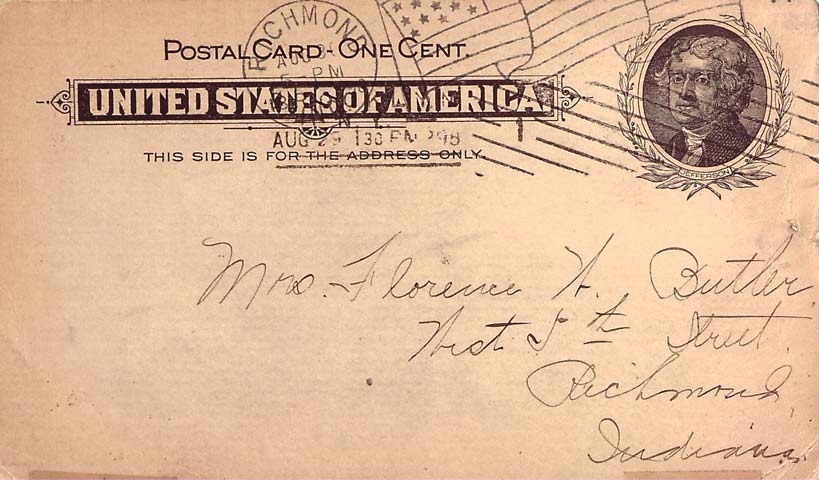 RICHMOND
POSTAL CARD - ONE CENT.
AUG
5 - PM
UNITED STATES OF AMERICA
AUG 29 130 PM '98
THIS SIDE IS FOR THE ADDRESS ONLY.
JEFFERSON
Mrs. Florence N. Butler,
West 5th Street,
Richmond,
Indiana.